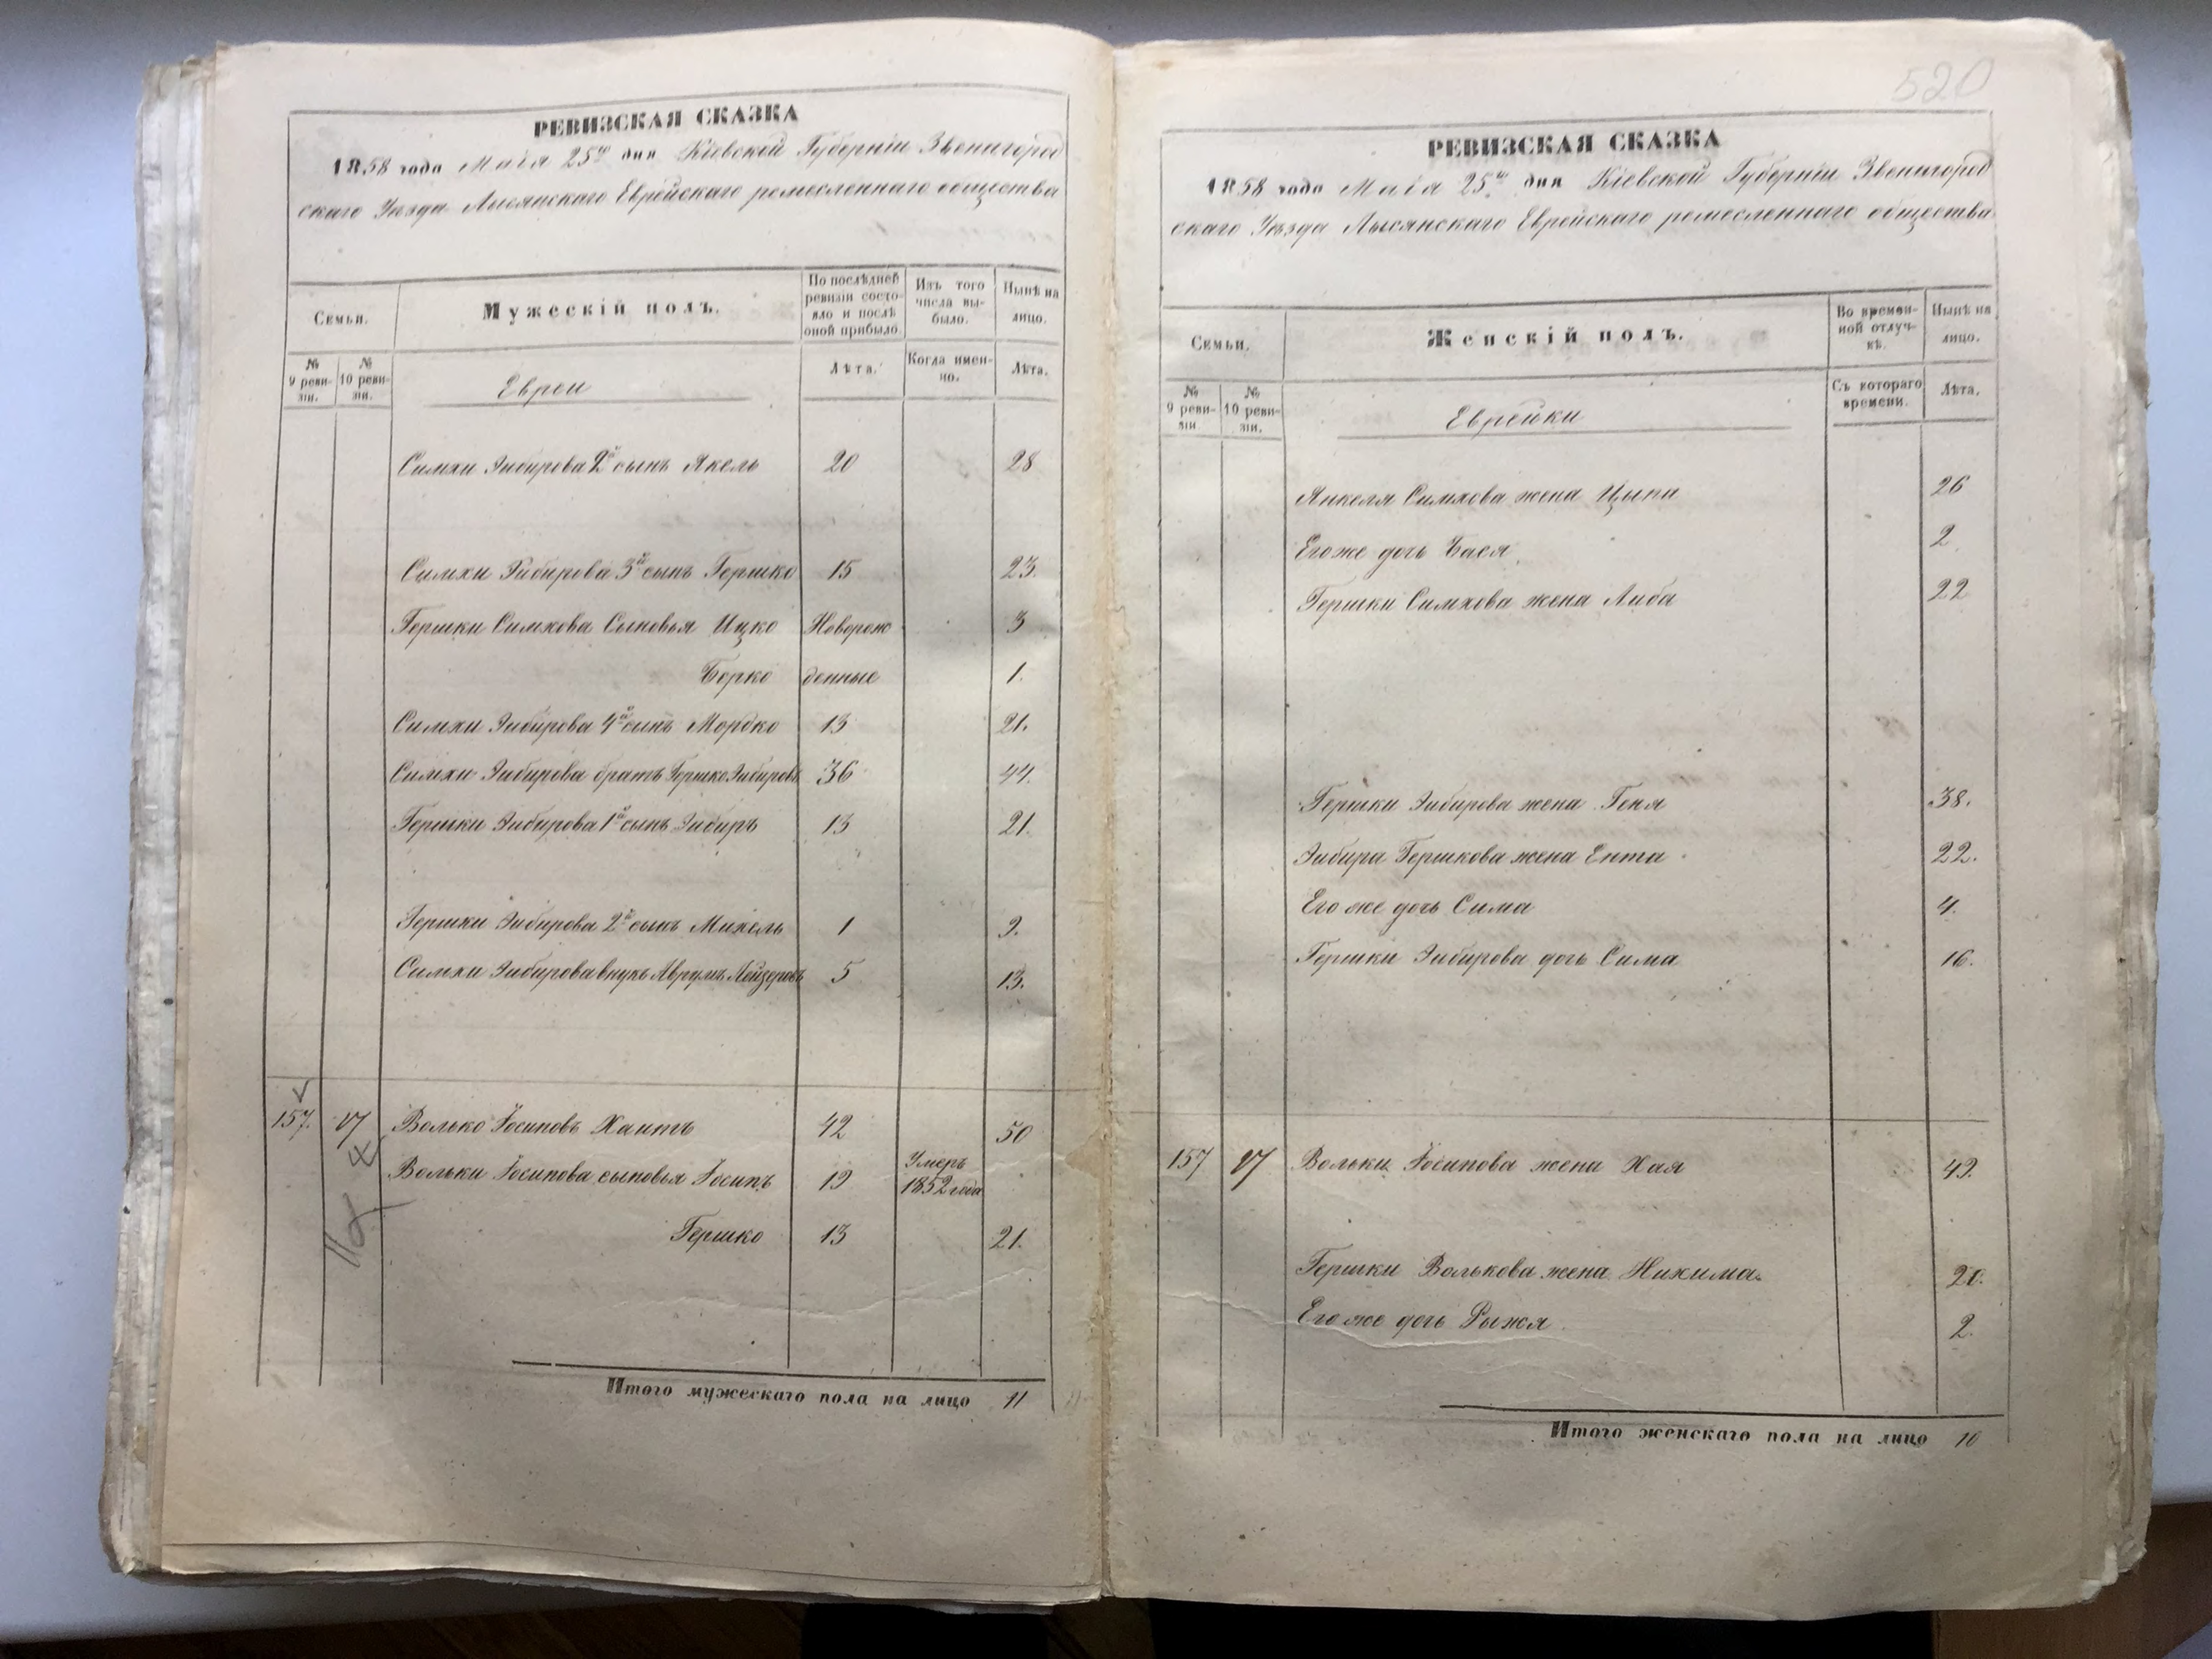 РЕВИЗСКАЯ СКАЗКА
1858 года Маія 25го дня Кіевской Губерніи Звенигород
скаго Уезда Лысянскаго Еврейскаго ремесленнаго общества
Семьи.
Мужескій полъ.
По послѣдней ревизіи состояло и послѣ оной прибыло.
Изъ того числа выбыло.
Нынѣ на лицо.
№ 9 ревизіи.
№ 10 ревизіи.
Евреи
Лѣта.
Когда именно.
Лѣта.
Симхи Зибирова 2й сынъ Якель 20 28
Симхи Зибирова 3й сынъ Гершко 15 23.
Гершки Симхова Сыновья Ицко Новорож 3
Берко денные 1.
Симхи Зибирова 4й сынъ Мордко 13 21.
Симхи Зибирова братъ Гершко Зибировъ 36 44.
Гершки Зибирова 1й сынъ Зибиръ 13 21.
Гершки Зибирова 2й сынъ Михель 1 9.
Симхи Зибирова внукъ Аврумъ Лейзеровъ 5 13.
157. Волько Іосиповъ Хаитъ 42 50
Вольки Іосипова сыновья Іосипъ 19 Умеръ 1852 года
Гершко 13 21.
Итого мужескаго пола на лицо 11
520
РЕВИЗСКАЯ СКАЗКА
1858 года Маія 25го дня Кіевской Губерніи Звенигород
скаго Уезда Лысянскаго Еврейскаго ремесленнаго общества
Семьи.
Женскій полъ.
Во временной отлучкѣ.
Нынѣ на лицо.
№ 9 ревизіи.
№ 10 ревизіи.
Еврейки
Съ котораго времени.
Лѣта.
Янкеля Симхова жена Цыпа 26
Егоже дочь Бася 2
Гершки Симхова жена Либа 22
Гершки Зибирова жена Геня 38.
Зибира Гершкова жена Ента 22.
Его же дочь Сима 4.
Гершки Зибирова дочь Сима 16.
157 Вольки Іосипова жена Хая 49.
Гершки Волькова жена Нихима 20.
Его же дочь Рыхля 2.
Итого женскаго пола на лицо 10